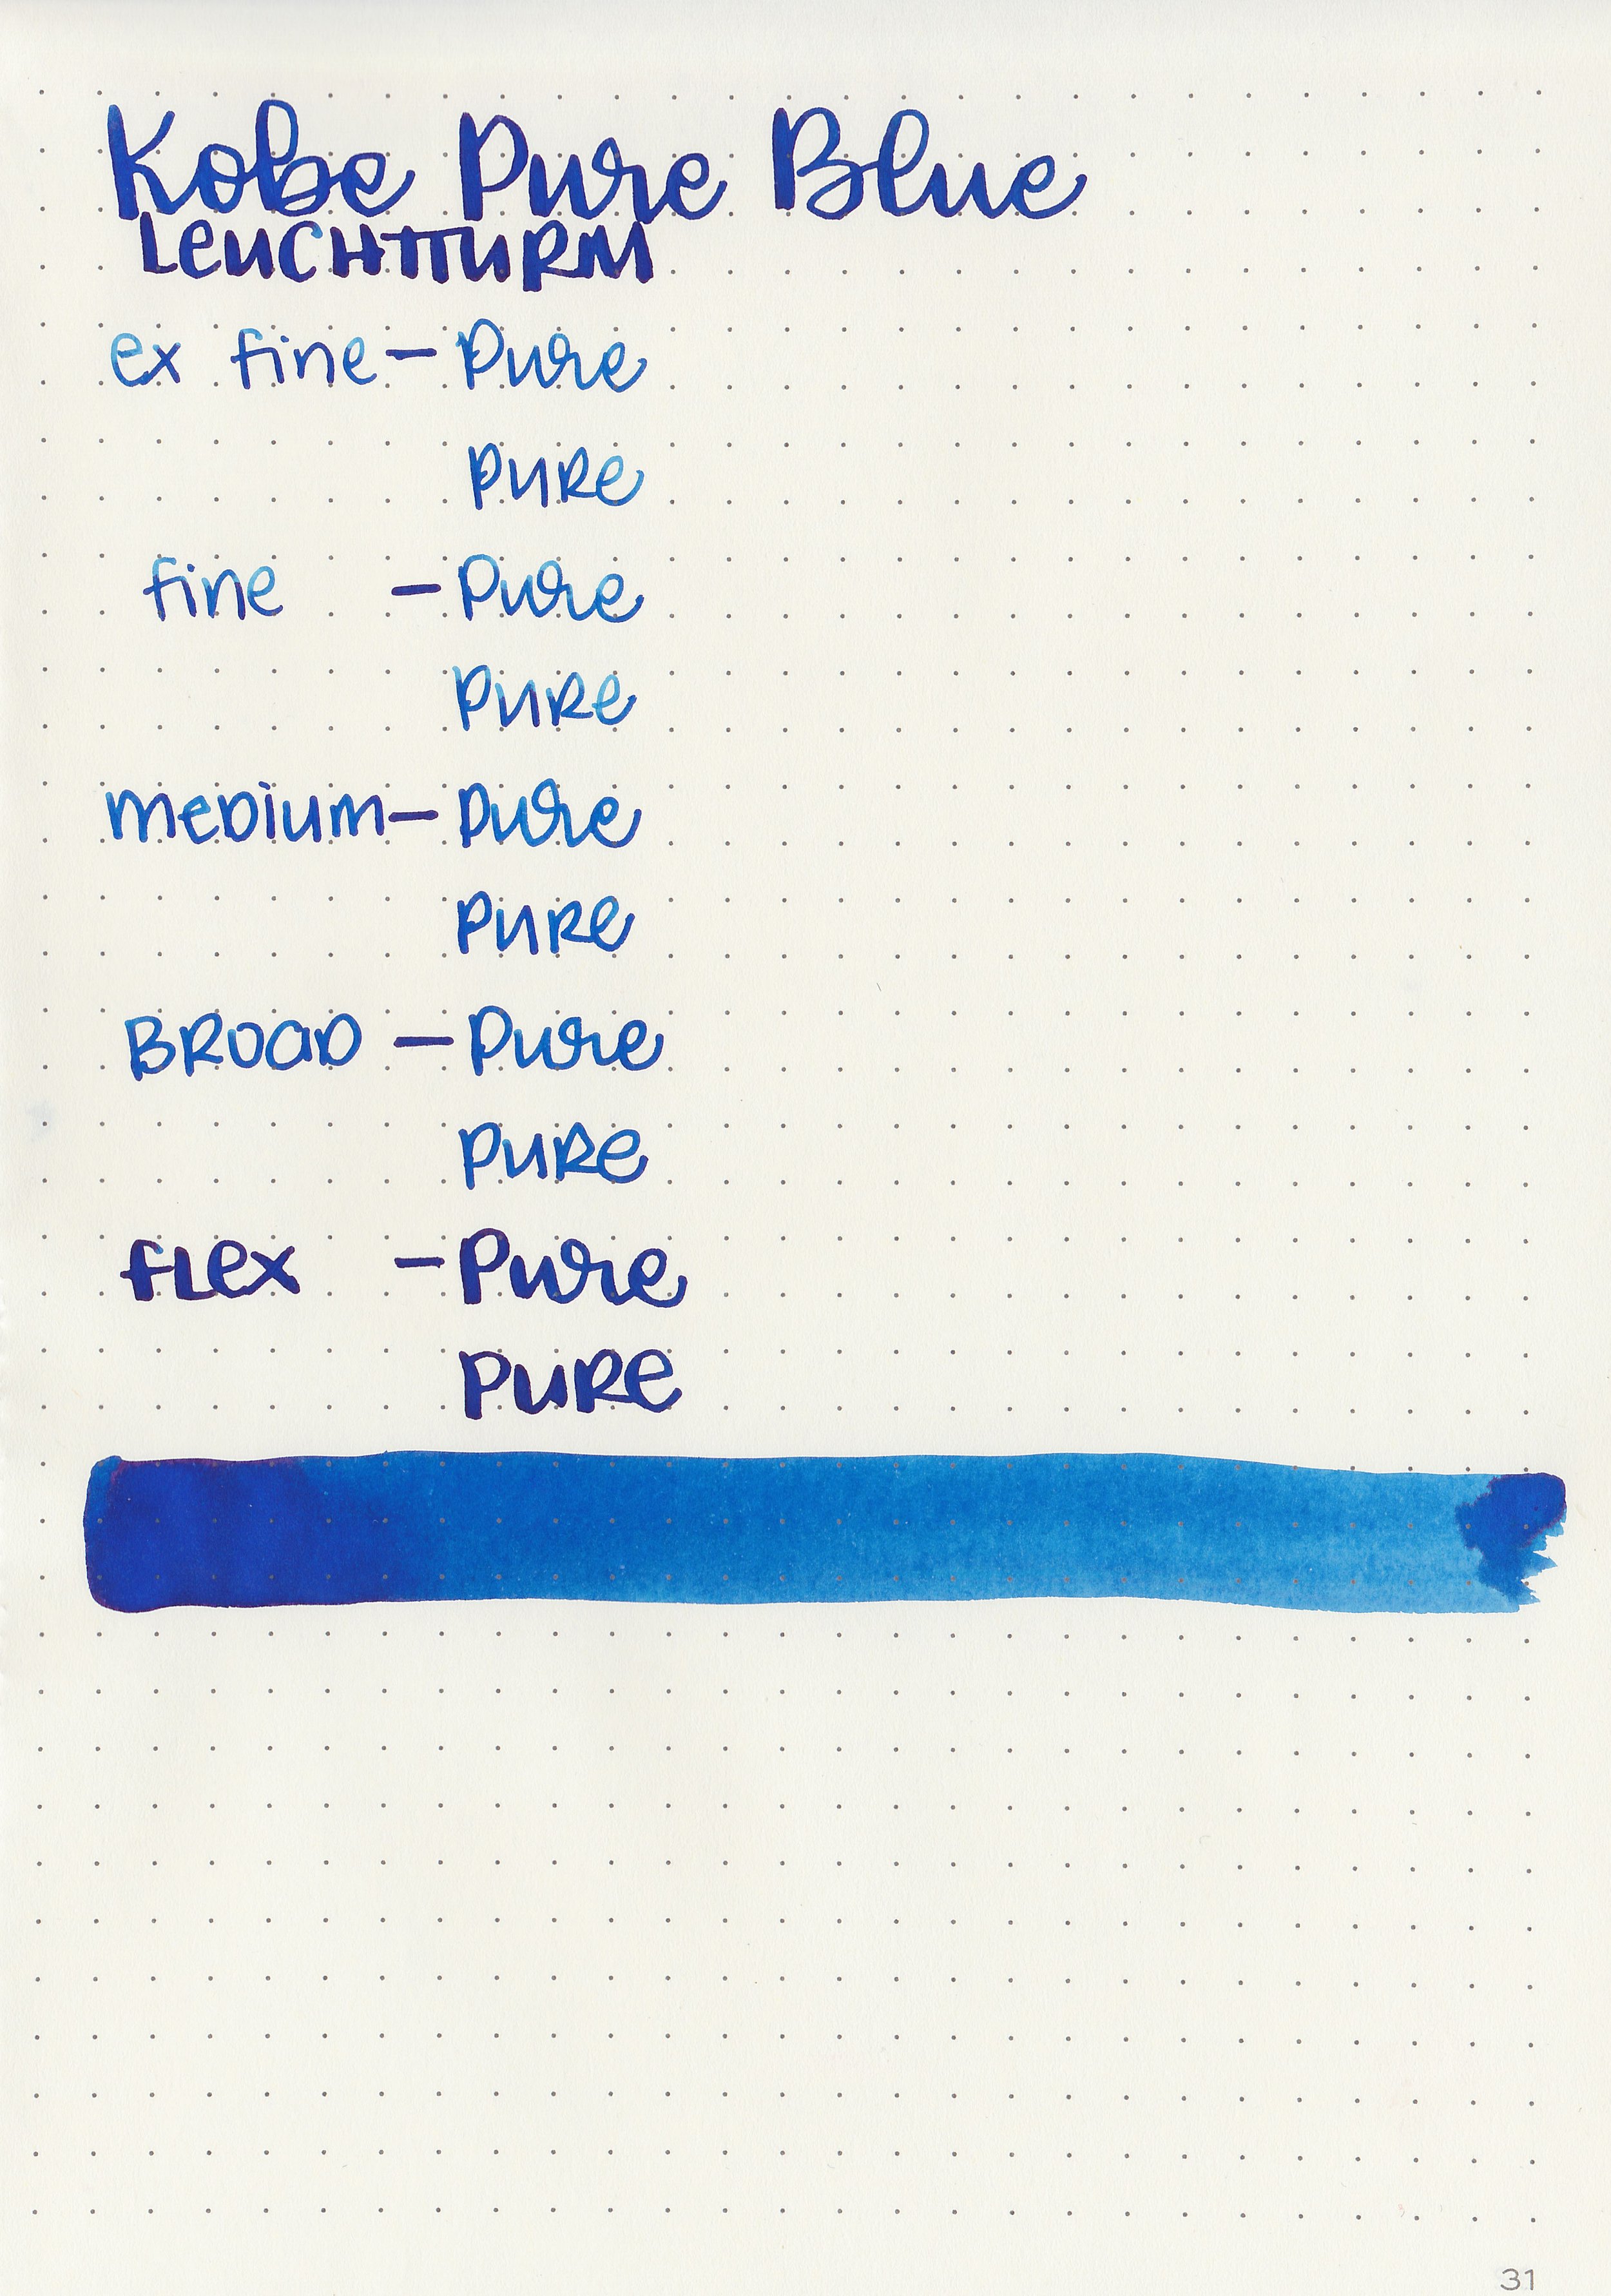 Kobe Pure Blue
LeUCHTTURM
ex fine - Pure
PURe
fine - Pure
PURe
meDium - Pure
PURe
BROaD - Pure
PURe
fLex - Pure
PURe
31